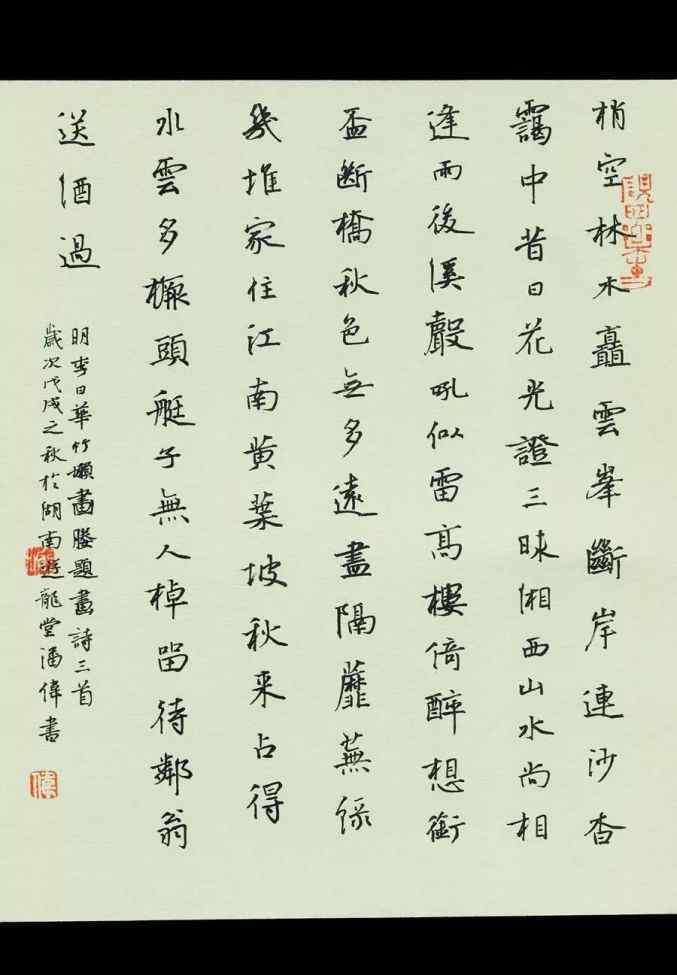 梢空林木矗雲峯斷岸連沙杳
靄中昔日花光證三昧湘西山水尚相
逢雨後溪聲吼似雷高樓倚醉想銜
盃斷橋秋色無多遠盡隔蘼蕪綠
幾堆家住江南黄葉坡秋来占得
水雲多橛頭艇子無人棹留待鄰翁
送酒過
明李日華竹嬾畫媵題畫詩三首
歲次戊戌之秋於湖南遊龍堂潘偉書